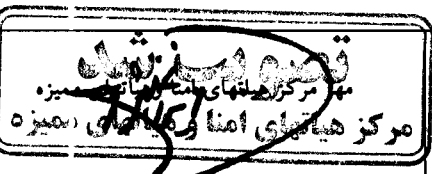 تصویب شد
مهر مرکز هیأتهای امنا و هیأتهای ممیزه
مرکز هیأتهای امنا و هیأتهای ممیزه